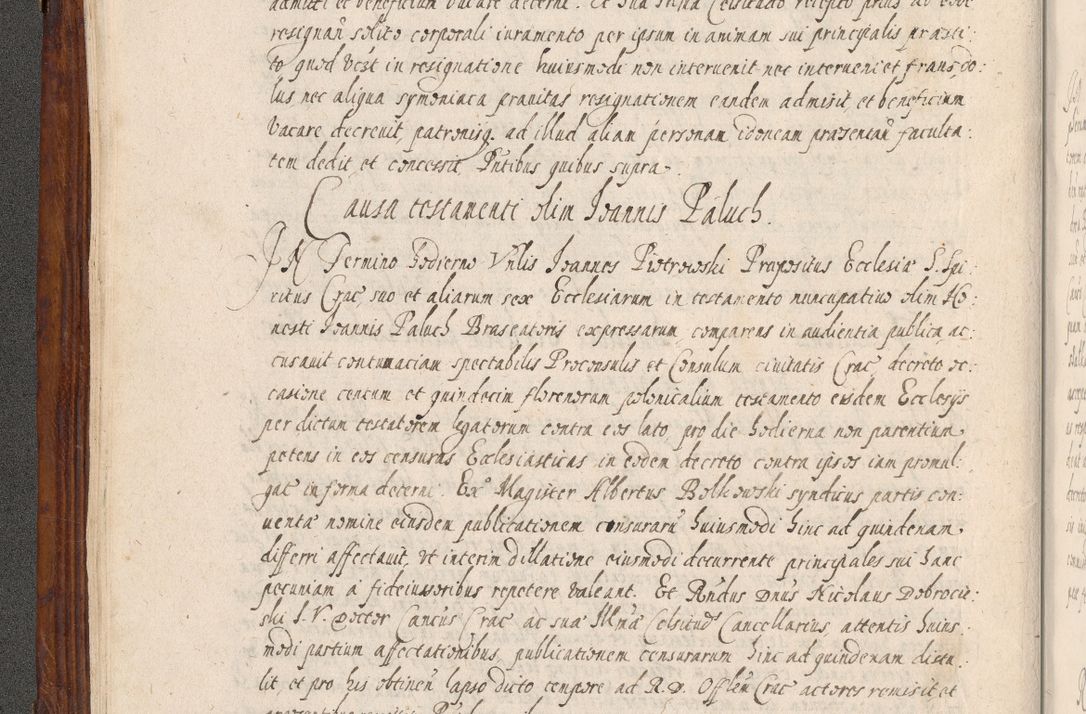 admitti et beneficium vacare decerni. Et Sua Illma Celsitudo recepto prius ab eode
resignan̄ solito corporali iuramento per ipsum in animam sui principalis præsti:
to quod vcżt in resignatione huiusmodi non intervenit nec interveniet fraus, do:
lus nec aliqua symoniaca pravitas resignationem eandem admisit et beneficium
vacare decrevit, patronisq. ad illud aliam personam idoneam præsentan̄ faculta:
tem dedit et concessit, Pntibus quibus supra.
Causa testamenti olim Ioannis Paluch.
IN Termino hodierno Vnlis Ioannes Pietrowski Præpositus Ecclesiæ S. Spi:
ritus Crac̄ suo et aliarum sex Ecclesiarum in testamento nuncupativo olim Ho:
nesti Ioannis Paluch Braseatoris expressarum, comparens in audientia publica, ac:
cusavit contumaciam spectabilis Proconsulis et Consulum civitatis Crac̄, decreto oc:
casione centum et quindecim florenorum polonicalium testamento eisdem Ecclesijs
per dictum testatorem legatorum contra eos lato, pro die hodierna non parentium
petens in eos censuras Ecclesiasticas in eodem decreto contra ipsos iam promul:
gat̄ in forma decerni. Exº Magister Albertus Bolkowski syndicus partis con:
ventæ nomine eiusdem publicationem censurarū huiusmodi hinc ad quindenam
differri affectavit, vt interim dillatione eiusmodi decurrente principales sui hanc
pecuniam à fideiussoribus repetere valeant. Et Rndus Dnus Nicolaus Dobrocie:
ski I. V. Doctor Cancus Crac̄ ac suæ Illmæ Celsitud̄ Cancellarius, attentis huius:
modi partium affectationibus, publicationem censurarum hinc ad quindenam distu:
lit, et pro his obtinen̄ lapso dicto tempore ad R. D. Officlen̄ Crac̄ actores remisit et